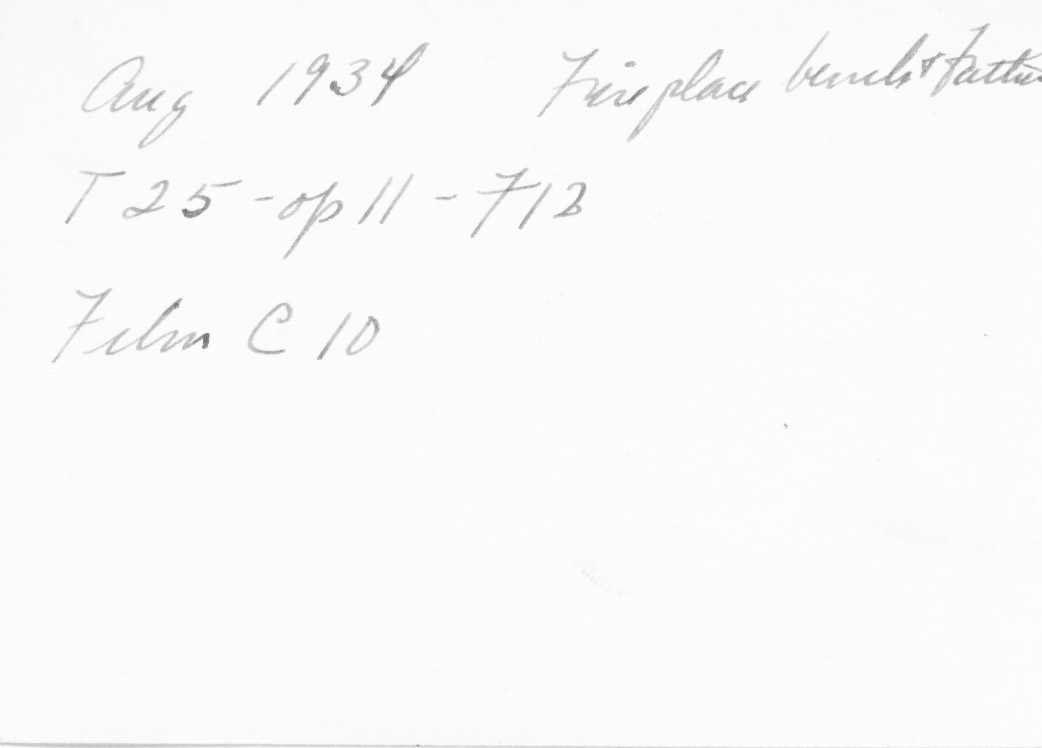 Aug 1934 Fireplace bench & Father
T 25 - op 11 - 712
Film C 10